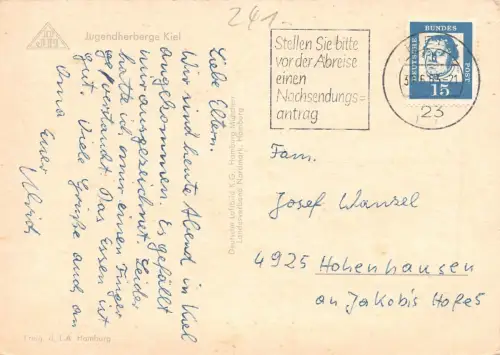 241.-
Jugendherberge Kiel
Liebe Eltern.
Wir sind heute Abend in Kiel
angekommen. Es gefällt
mir ausgezeichnet. Leider
hatte ich mir einen Finger
verstaucht. Das Essen ist
gut. Viele Grüße auch an
Oma Euer
Ulrich
Deutsche Luftbild K.G., Hamburg
Landesverband Nordmark, Hamburg
Hamburg
Stellen Sie bitte
vor der Abreise
einen
Nachsendungs=
antrag
23
DEUTSCHE
BUNDES
POST
15
Fam.
Josef Wanzel
4925 Hohenhausen
an Jakobis Hofes